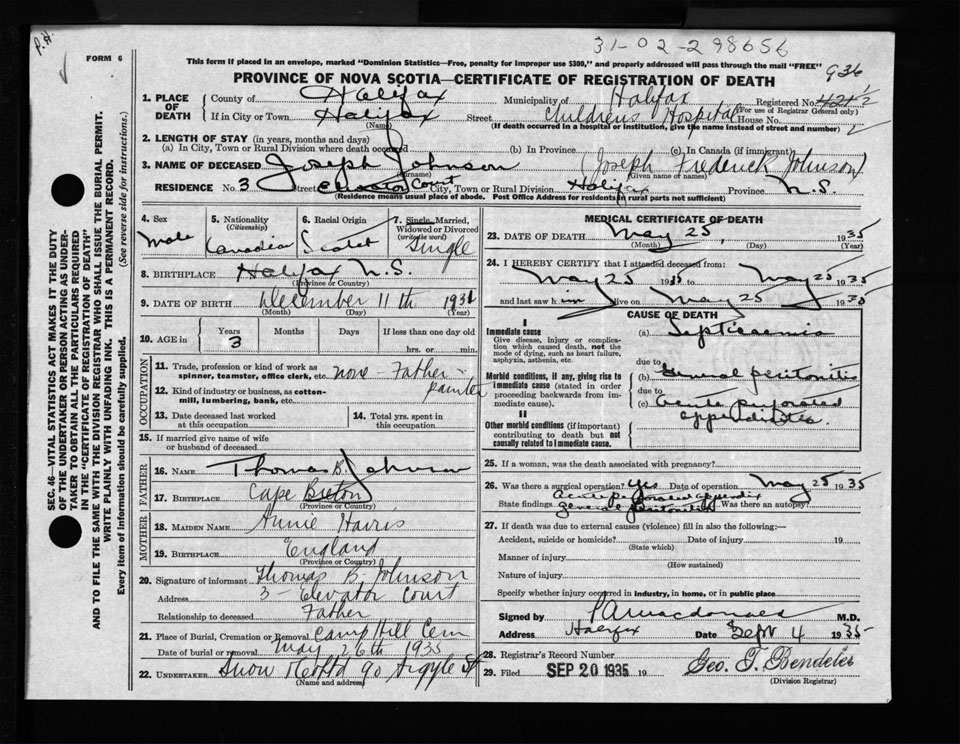 P.H.
31-02-298656
FORM 6
This form if placed in an envelope, marked "Dominion Statistics—Free, penalty for improper use $300," and properly addressed will pass through the mail "FREE"
936
PROVINCE OF NOVA SCOTIA—CERTIFICATE OF REGISTRATION OF DEATH
SEC. 46—VITAL STATISTICS ACT MAKES IT THE DUTY
OF THE UNDERTAKER OR PERSON ACTING AS UNDER-
TAKER TO OBTAIN ALL THE PARTICULARS REQUIRED
IN THE "CERTIFICATE OF REGISTRATION OF DEATH"
AND TO FILE THE SAME WITH THE DIVISION REGISTRAR WHO SHALL ISSUE THE BURIAL PERMIT.
WRITE PLAINLY WITH UNFADING INK. THIS IS A PERMANENT RECORD.
Every item of information should be carefully supplied. (See reverse side for instructions.)
1. PLACE OF DEATH County of Halifax Municipality of Halifax Registered No. 421 1/2
(For use of Registrar General only)
If in City or Town Halifax Street Childrens Hospital House No.
(Name) (If death occurred in a hospital or institution, give the name instead of street and number)
2. LENGTH OF STAY (in years, months and days)
(a) In City, Town or Rural Division where death occurred (b) In Province (c) In Canada (if immigrant)
3. NAME OF DECEASED Joseph Johnson (Joseph Frederick Johnson)
(Surname) (Given name or names)
RESIDENCE No. 3 Street Elevator Court City, Town or Rural Division Halifax Province N.S.
(Residence means usual place of abode. Post Office Address for residents in rural parts not sufficient)
4. Sex
Male
5. Nationality
(Citizenship)
Canadian
6. Racial Origin
Scotch
7. Single, Married,
Widowed or Divorced
(write the word)
Single
8. BIRTHPLACE Halifax N.S.
(Province or Country)
9. DATE OF BIRTH December 11th 1931
(Month) (Day) (Year)
10. AGE in
Years Months Days If less than one day old
3 hrs. or min.
OCCUPATION
11. Trade, profession or kind of work as
spinner, teamster, office clerk, etc. none - Father - painter
12. Kind of industry or business, as cotton-
mill, lumbering, bank, etc.
13. Date deceased last worked
at this occupation
14. Total yrs. spent in
this occupation
15. If married give name of wife
or husband of deceased
FATHER
16. NAME Thomas B. Johnson
17. BIRTHPLACE Cape Breton
(Province or Country)
MOTHER
18. MAIDEN NAME Annie Harris
19. BIRTHPLACE England
(Province or Country)
20. Signature of informant Thomas B. Johnson
Address 3 - Elevator Court
Relationship to deceased Father
21. Place of Burial, Cremation or Removal Camp Hill Cem
Date of burial or removal May 26th 1935
22. UNDERTAKER Snow & Co Ltd 90 Argyle St
(Name and address)
MEDICAL CERTIFICATE OF DEATH
23. DATE OF DEATH May 25, 1935
(Month) (Day) (Year)
24. I HEREBY CERTIFY that I attended deceased from:
May 25 1935 to May 25 1935
and last saw him alive on May 25 1935
CAUSE OF DEATH
I
Immediate cause
Give disease, injury or complica-
tion which caused death, not the
mode of dying, such as heart failure,
asphyxia, asthenia, etc.
(a) Septicaemia
due to
Morbid conditions, if any, giving rise to
immediate cause (stated in order
proceeding backwards from im-
mediate cause).
(b) General peritonitis
due to
(c) Acute perforated
appendicitis.
II
Other morbid conditions (if important)
contributing to death but not
causally related to immediate cause.
25. If a woman, was the death associated with pregnancy?
26. Was there a surgical operation? Yes Date of operation May 25 1935
State findings Acute perforated appendix Was there an autopsy?
general peritonitis
27. If death was due to external causes (violence) fill in also the following:—
Accident, suicide or homicide? Date of injury 19
(State which)
Manner of injury
(How sustained)
Nature of injury
Specify whether injury occurred in industry, in home, or in public place
Signed by P A Macdonald M.D.
Address Halifax Date Sept 4 1935
28. Registrar's Record Number
29. Filed SEP 20 1935 19 Geo. T. Bendeler
(Division Registrar)